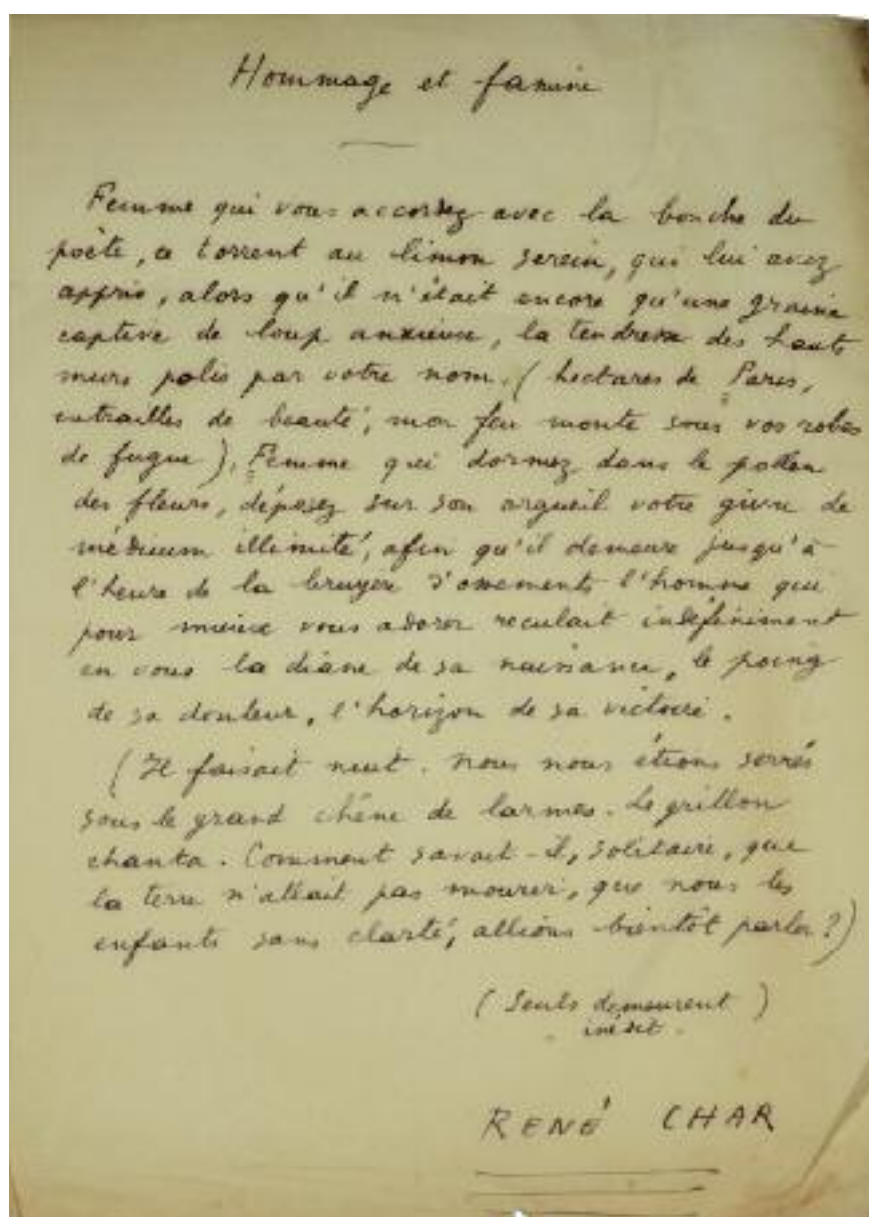 Hommage et famine
Femme qui vous accordez avec la bouche du
poète, ce torrent au limon serein, qui lui avez
appris, alors qu'il n'était encore qu'une graine
captive de loup anxieux, la tendresse des hauts
murs polis par votre nom. (hectares de Paris,
entrailles de beauté, mon feu monte sous vos robes
de fugue), Femme qui dormez dans le pollen
des fleurs, déposez sur son orgueil votre givre de
médium illimité, afin qu'il demeure jusqu'à
l'heure de la bruyère d'ossements l'homme qui
pour mieux vous adorer reculait indéfiniment
en vous la diane de sa naissance, le poing
de sa douleur, l'horizon de sa victoire.
(Il faisait nuit. Nous nous étions serrés
sous le grand chêne de larmes. Le grillon
chanta. Comment savait-il, solitaire, que
la terre n'allait pas mourir, que nous les
enfants sans clarté, allions bientôt parler?)
(Seuls demeurent)
inédit.
RENÉ CHAR